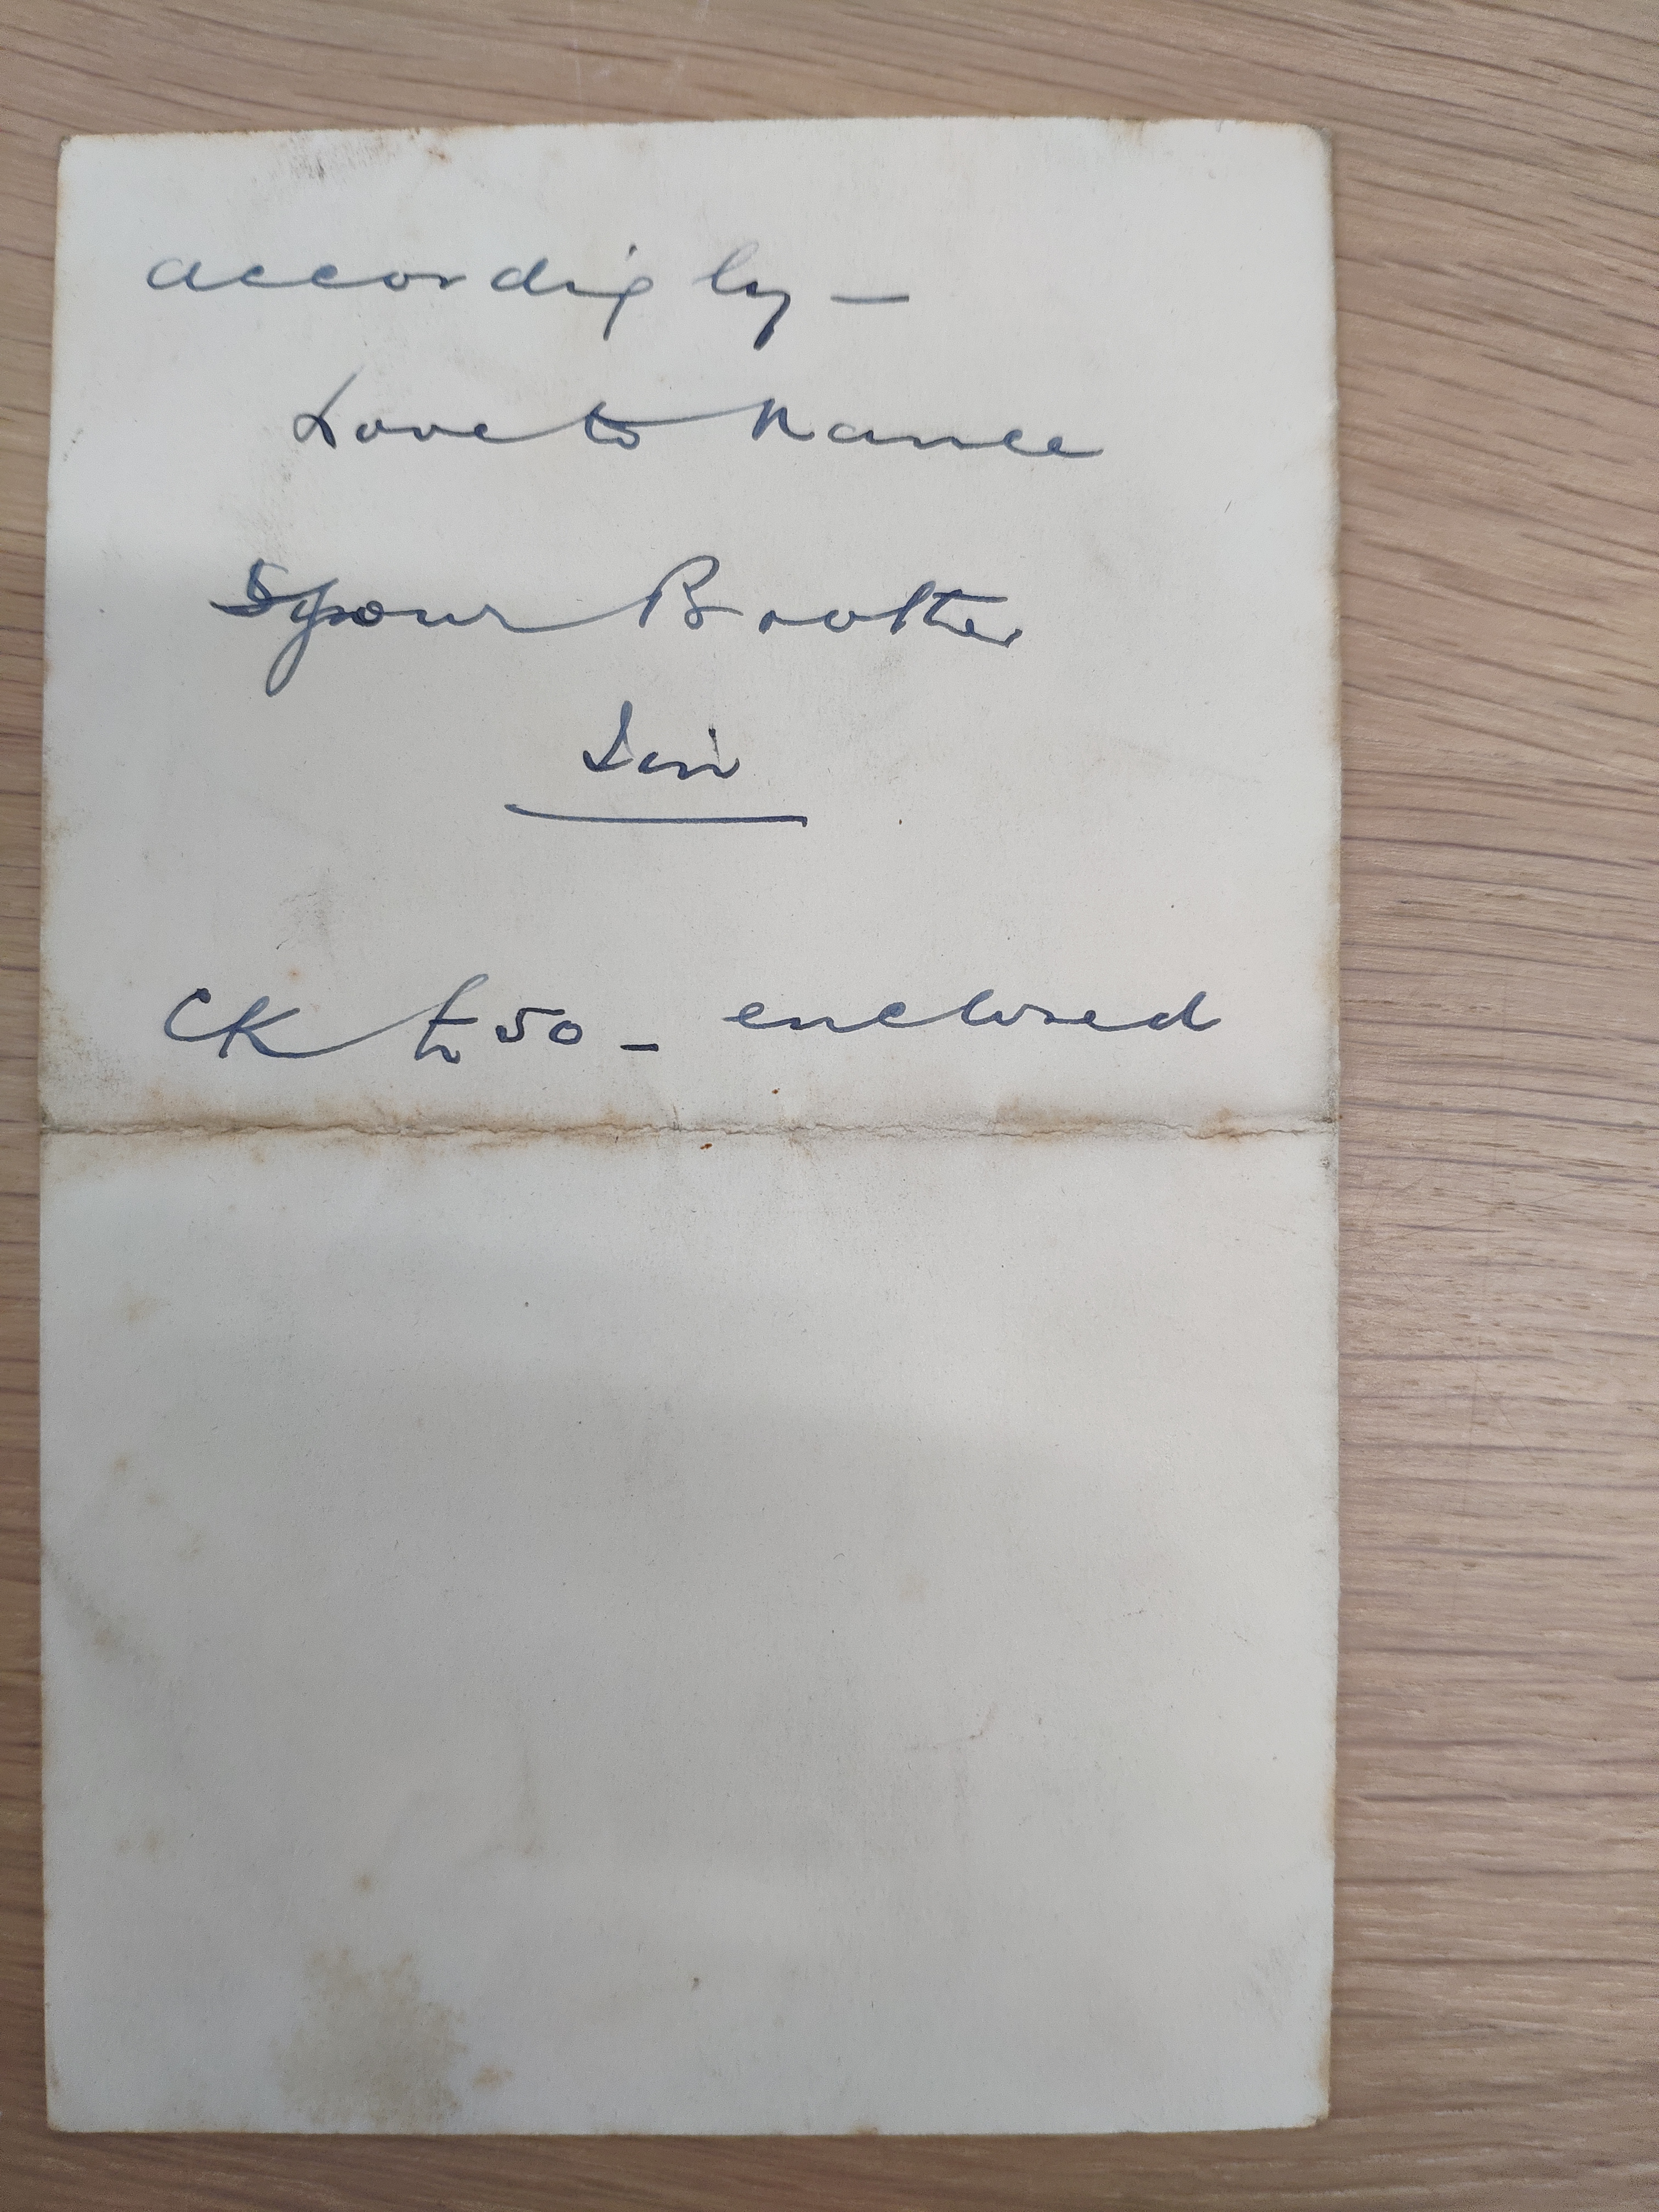 accordingly —
Love to Nance
your Brother
CK £50 - enclosed